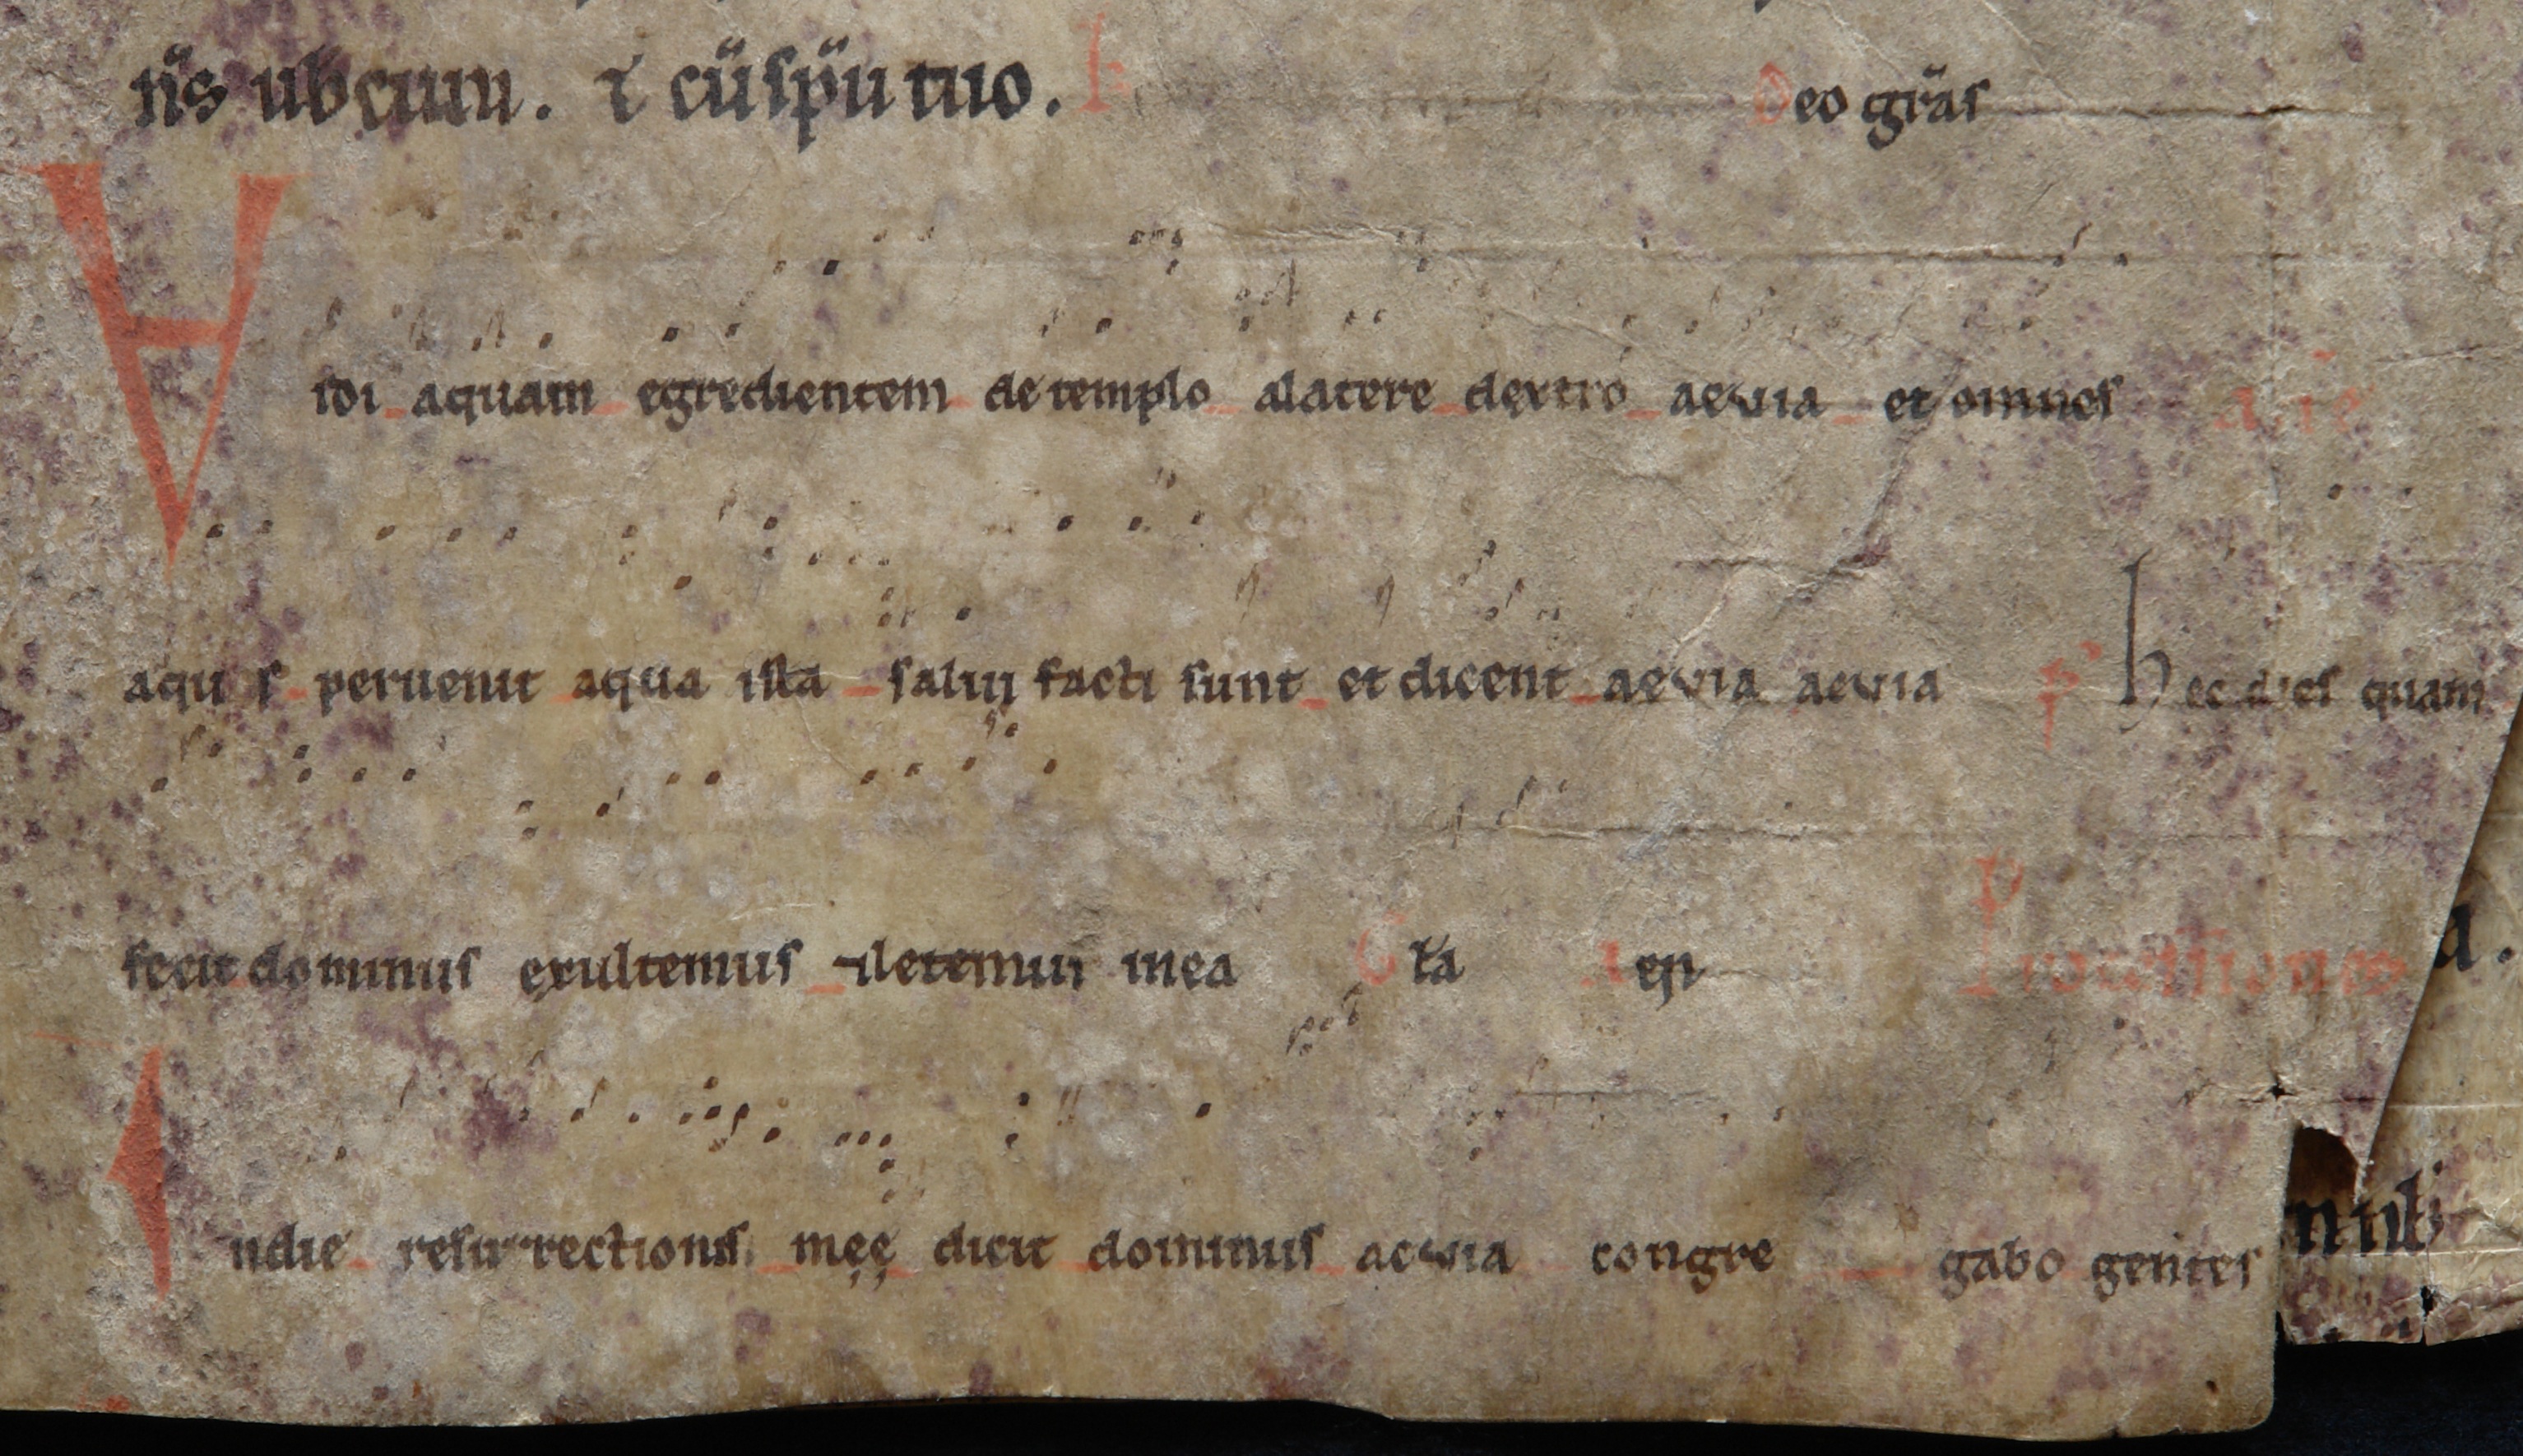 nͥs ubcum. ⁊ cu̾sp̾u tuo. R Deo gr̃as
Vidi aquam egredientem de templo alatere dextro aeuia et omnes
aqu s peruenit aqua ista saluj facti sunt et dicent aeuia aeuia ps hec dies quam
fecit dominus exultemus ⁊letemur inea Gła en
Indie resurrectionis męę dicit dominus aeuia congre gabo gentes